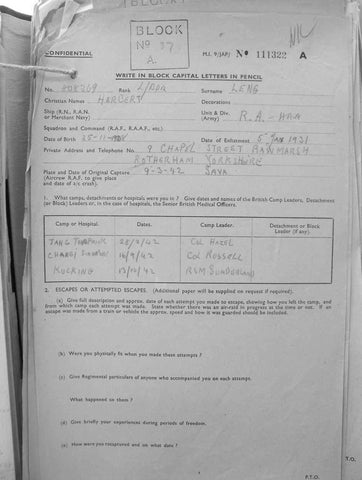 BLOCK
BLOCK
Nº 37
A.
CONFIDENTIAL
M.I. 9/JAP/ Nº 111322 A
WRITE IN BLOCK CAPITAL LETTERS IN PENCIL
No. Rank L/BDR Surname LENG
Christian Names HERBERT Decorations
Ship (R.N., R.A.N. or Merchant Navy) Unit & Div. (Army) R.A. - HAA
Squadron and Command (R.A.F., R.A.A.F., etc.)
Date of Birth 25-11- Date of Enlistment 5 JAN 1931
Private Address and Telephone No. 9 CHAPEL STREET RAWMARSH
ROTHERHAM YORKSHIRE
Place and Date of Original Capture 9-3-42 JAVA
(Aircrew R.A.F. to give place
and date of a/c crash).
1. What camps, detachments or hospitals were you in ? Give dates and names of the British Camp Leaders, Detachment
(or Block) Leaders or, in case of the hospitals, the Senior British Medical Officers.
Camp or Hospital. Dates. Camp Leader. Detachment or Block Leader (if any).
TANG /42 Col
CHANGI /9/42 Col RUSSELL
KUCHING /10/42 RSM SUNDERLAND
2. ESCAPES OR ATTEMPTED ESCAPES. (Additional paper will be supplied on request if required).
(a) Give full description and approx. date of each attempt you made to escape, showing how you left the camp, and
from which camp each attempt was made. State whether there was an air-raid in progress at the time or not. If an
escape was made from a train or vehicle the approx. speed and how it was guarded should be included.
(b) Were you physically fit when you made these attempts ?
(c) Give Regimental particulars of anyone who accompanied you on each attempt.
What happened to them ?
(d) Give briefly your experiences during periods of freedom.
(e) How were you recaptured and on what date ?
P.T.O.
P.T.O.